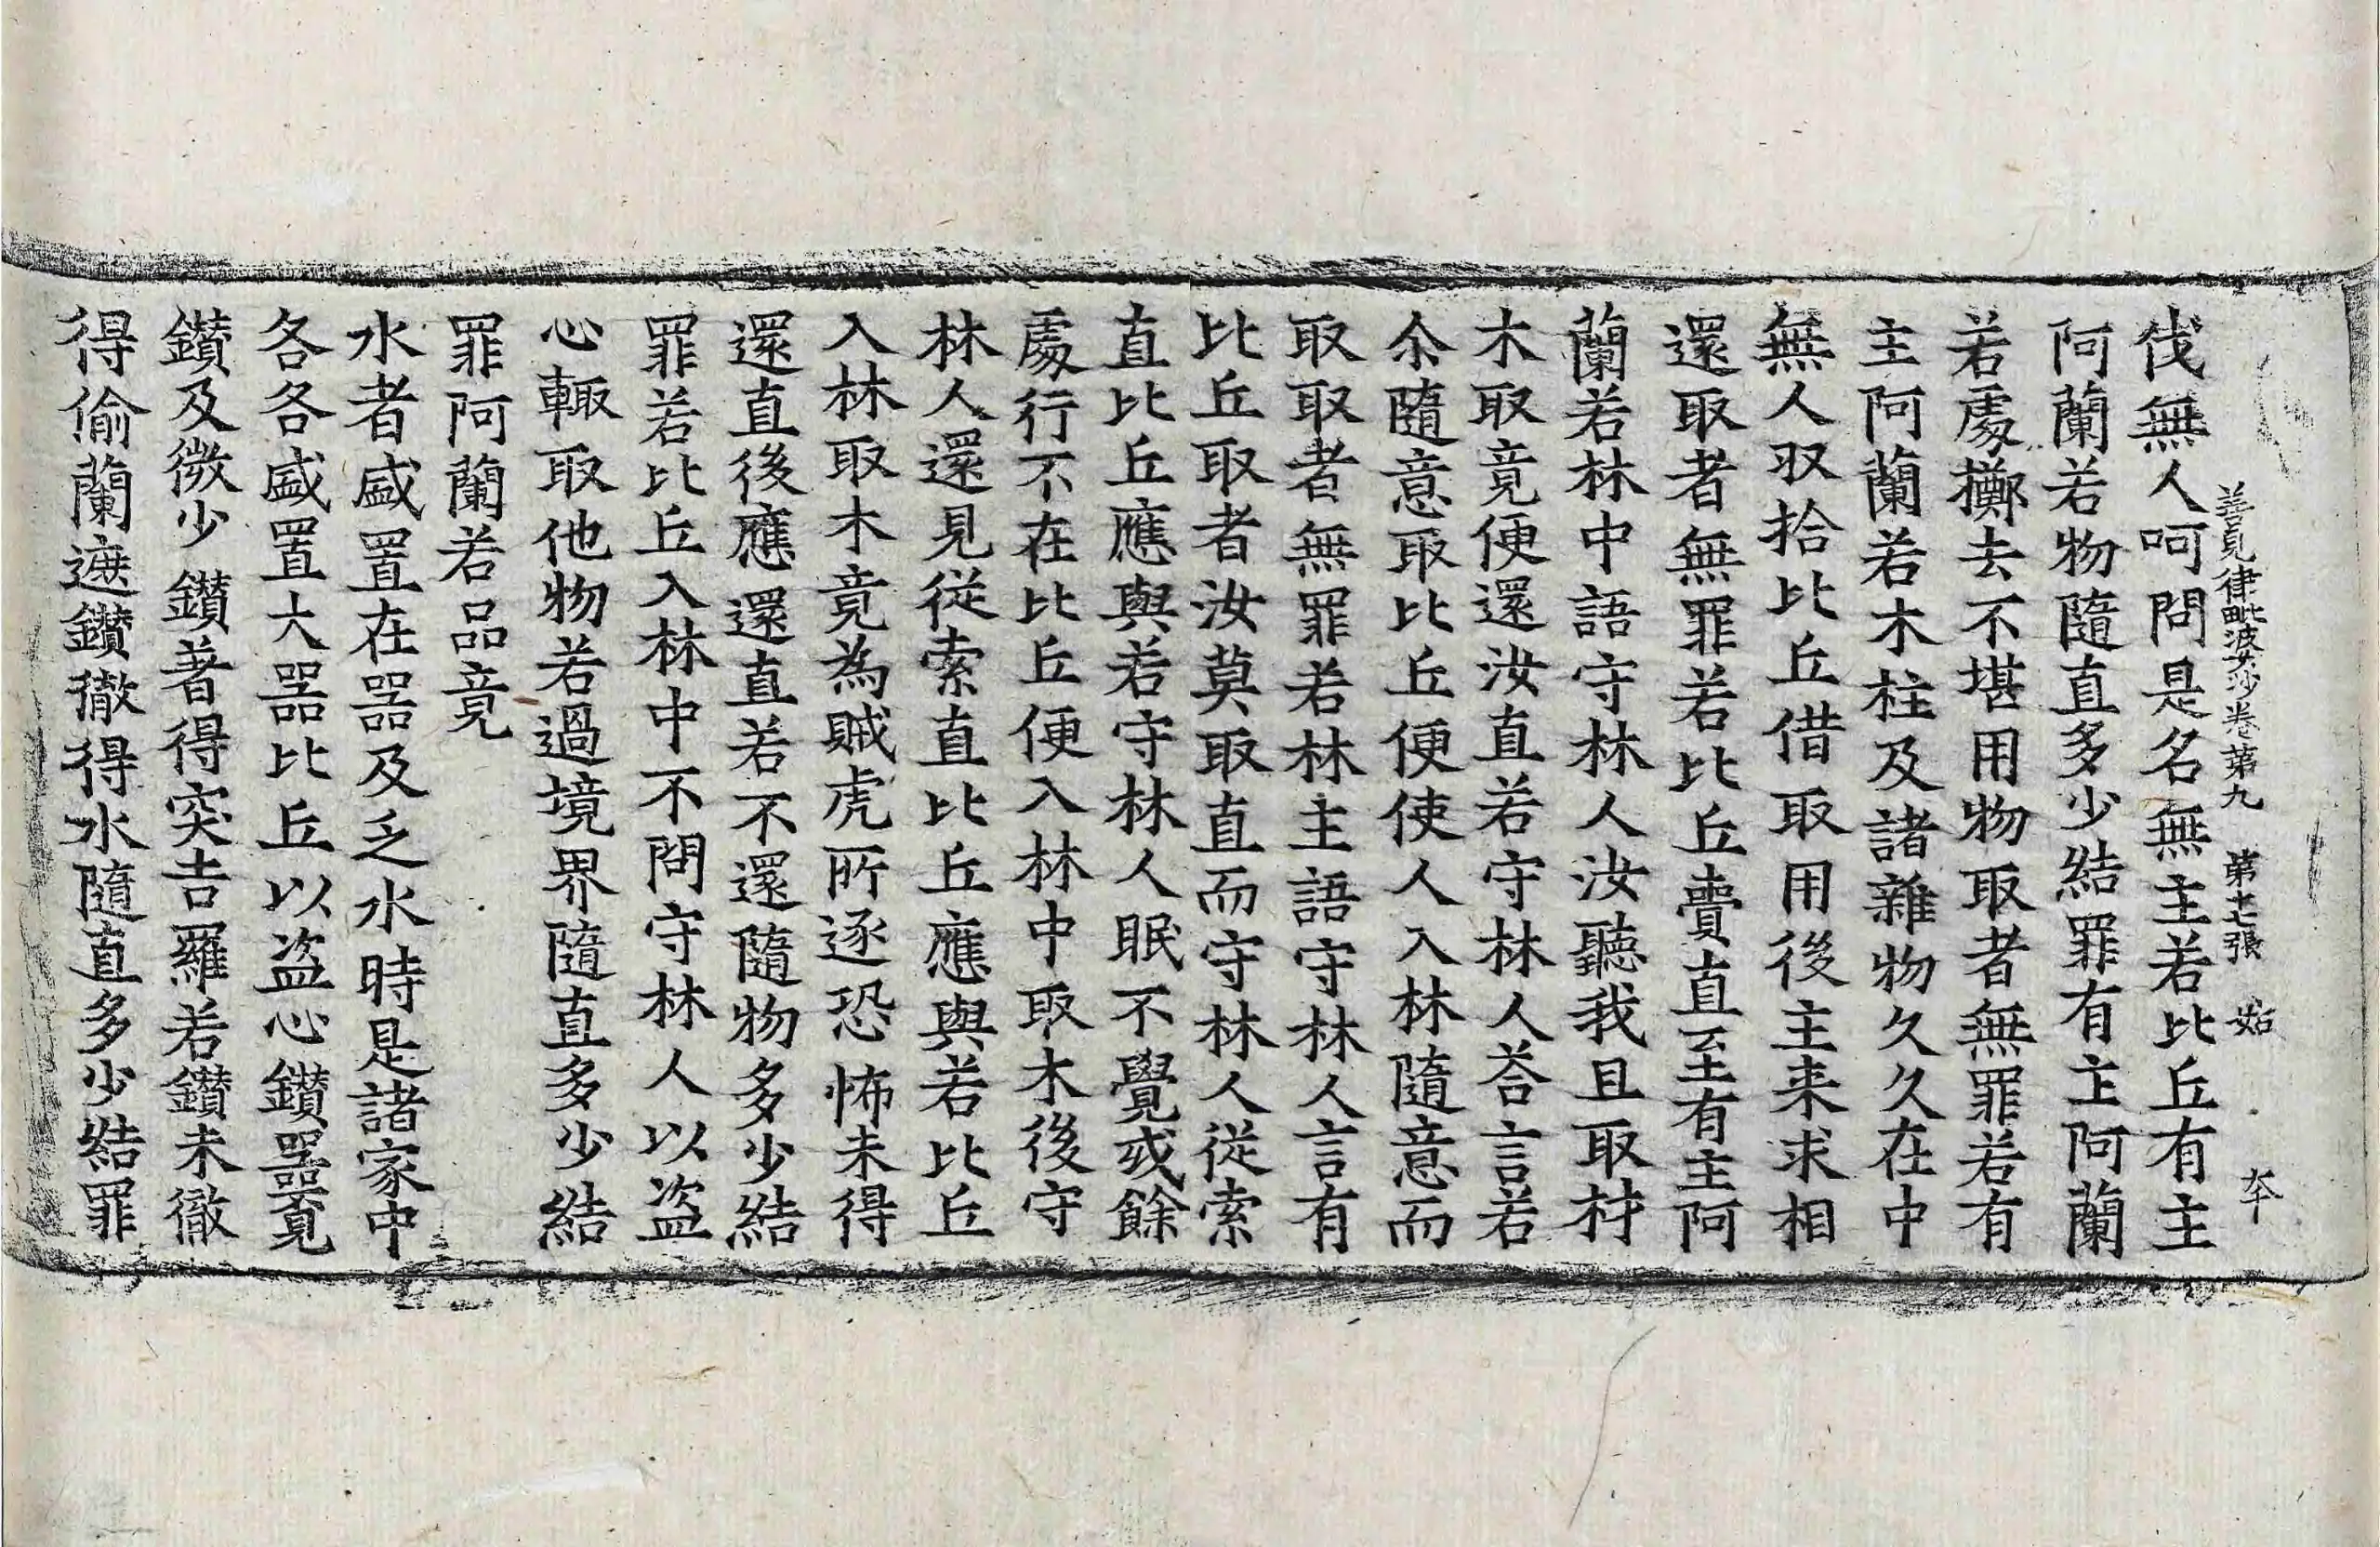 善見律毗婆沙卷第九　第十七張　姑
伐無人呵問是名無主若比丘有主
阿蘭若物隨直多少結罪有主阿蘭
若處擲去不堪用物取者無罪若有
主阿蘭若木柱及諸雜物久久在中
無人収拾比丘借取用後主来求相
還取者無罪若比丘賣直至有主阿
蘭若林中語守林人汝聽我且取材
木取竟便還汝直若守林人荅言若
尒隨意取比丘便使人入林隨意而
取取者無罪若林主語守林人言有
比丘取者汝莫取直而守林人從索
直比丘應與若守林人眠不覺或餘
處行不在比丘便入林中取木後守
林人還見從索直比丘應與若比丘
入林取木竟為賊虎所逐恐怖未得
還直後應還直若不還隨物多少結
罪若比丘入林中不問守林人以盜
心輙取他物若過境界隨直多少結
罪阿蘭若品竟
水者盛置在器及乏水時是諸家中
各各盛置大器比丘以盜心鑽器覓
鑽及微少鑽著得突吉羅若鑽未徹
得偷蘭遮鑽徹得水隨直多少結罪